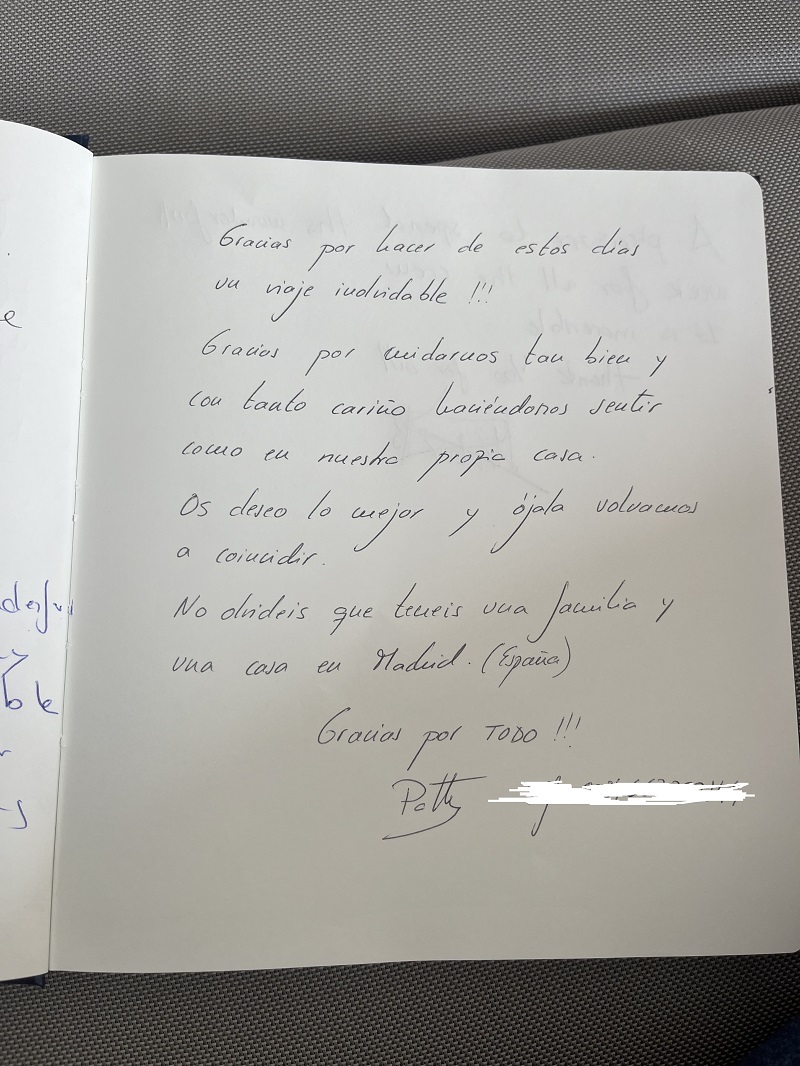 Gracias por hacer de estos días
un viaje inolvidable !!!
Gracias por cuidarnos tan bien y
con tanto cariño haciéndonos sentir
como en nuestra propia casa.
Os deseo lo mejor y ójala volvamos
a coincidir.
No olvideis que teneis una familia y
una casa en Madrid. (España)
Gracias por TODO !!!
Patty